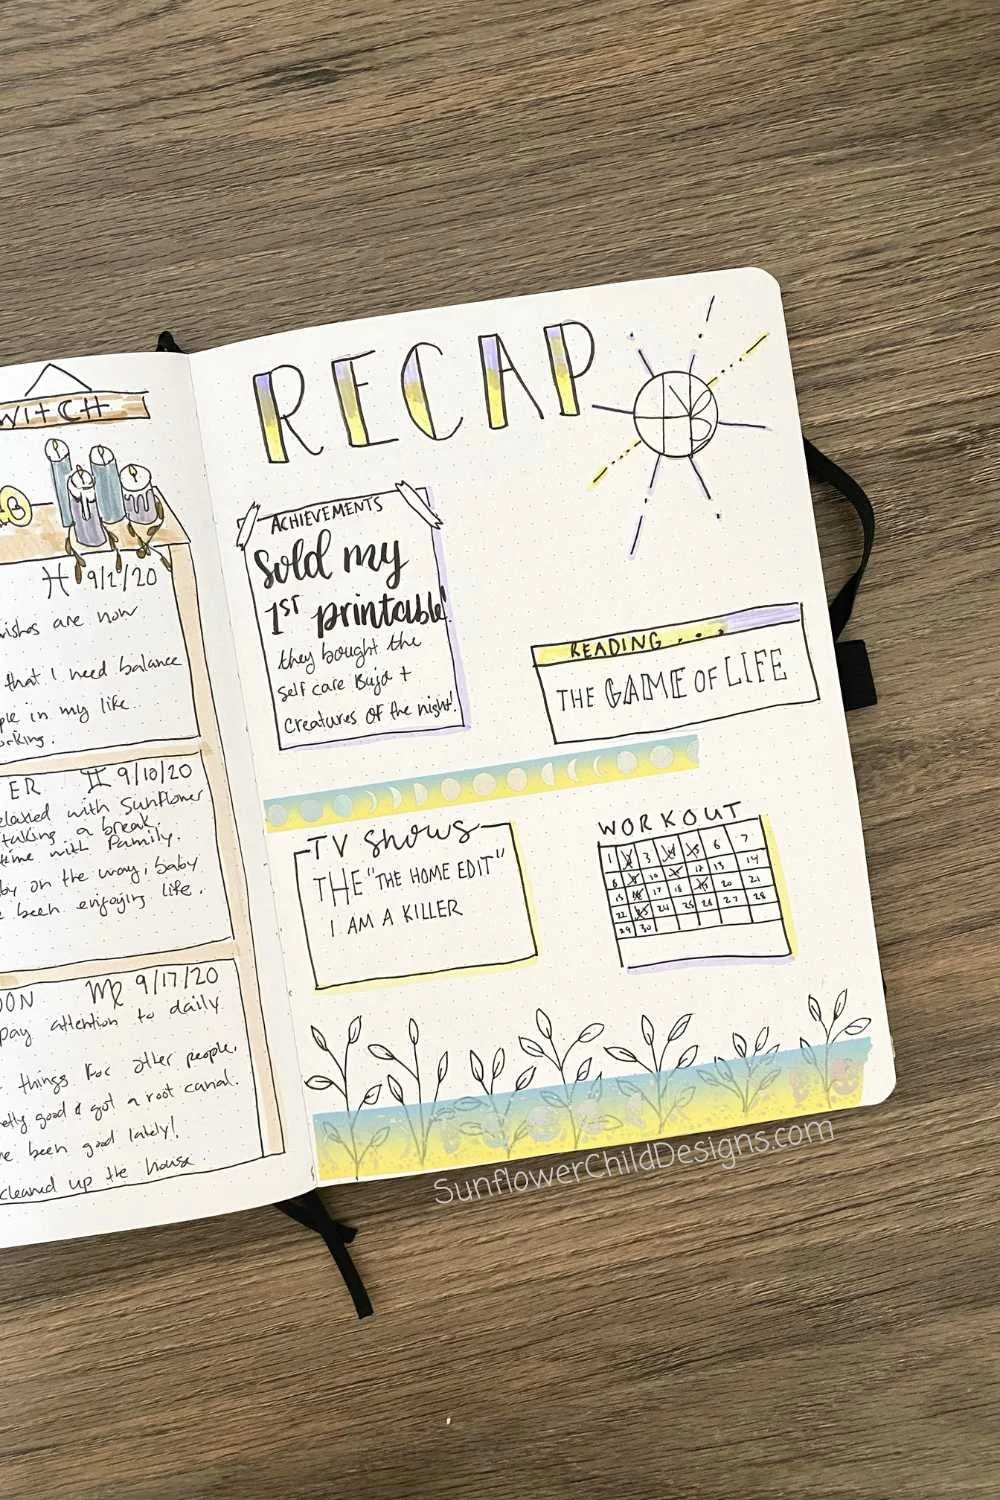 WITCH
♓ 9/2/20
wishes are now
that I need balance
in my life
ER ♊ 9/10/20
relaxed with Sunflower
taking a break.
time with family.
on the way, baby
been enjoying life.
♍ 9/17/20
pay attention to daily
things for other people.
good & got a root canal.
been good lately!
cleaned up the house.
RECAP
ACHIEVEMENTS
Sold my
1ST printable!
they bought the
self care Bujo +
Creatures of the night!
READING...
THE GAME OF LIFE
TV Shows
THE "THE HOME EDIT"
I AM A KILLER
WORKOUT
1 3 6 7
8 10 12 13 14
15 17 18 20 21
22 24 25 26 27 28
29 30
SunflowerChildDesigns.com